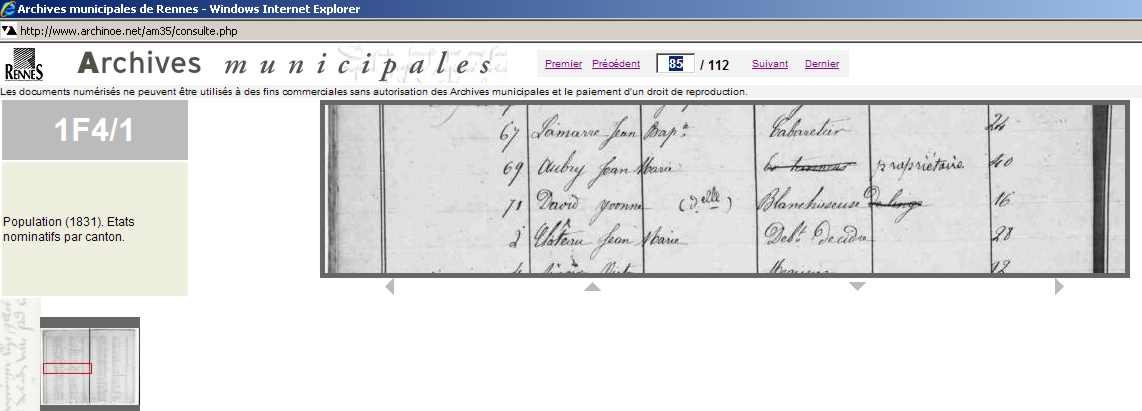 Archives municipales de Rennes - Windows Internet Explorer
http://www.archinoe.net/am35/consulte.php
RENNES Archives municipales Premier Précédent 85 / 112 Suivant Dernier
Les documents numérisés ne peuvent être utilisés à des fins commerciales sans autorisation des Archives municipales et le paiement d'un droit de reproduction.
1F4/1
Population (1831). Etats
nominatifs par canton.
67 Lamarre Jean Bap.te Cabaretier 24
69 Aubry Jean Marie propriétaire 40
71 David Yvonne (d.elle) Blanchisseuse De linge 16
2 Jean Marie Deb.t De cidre 28
12